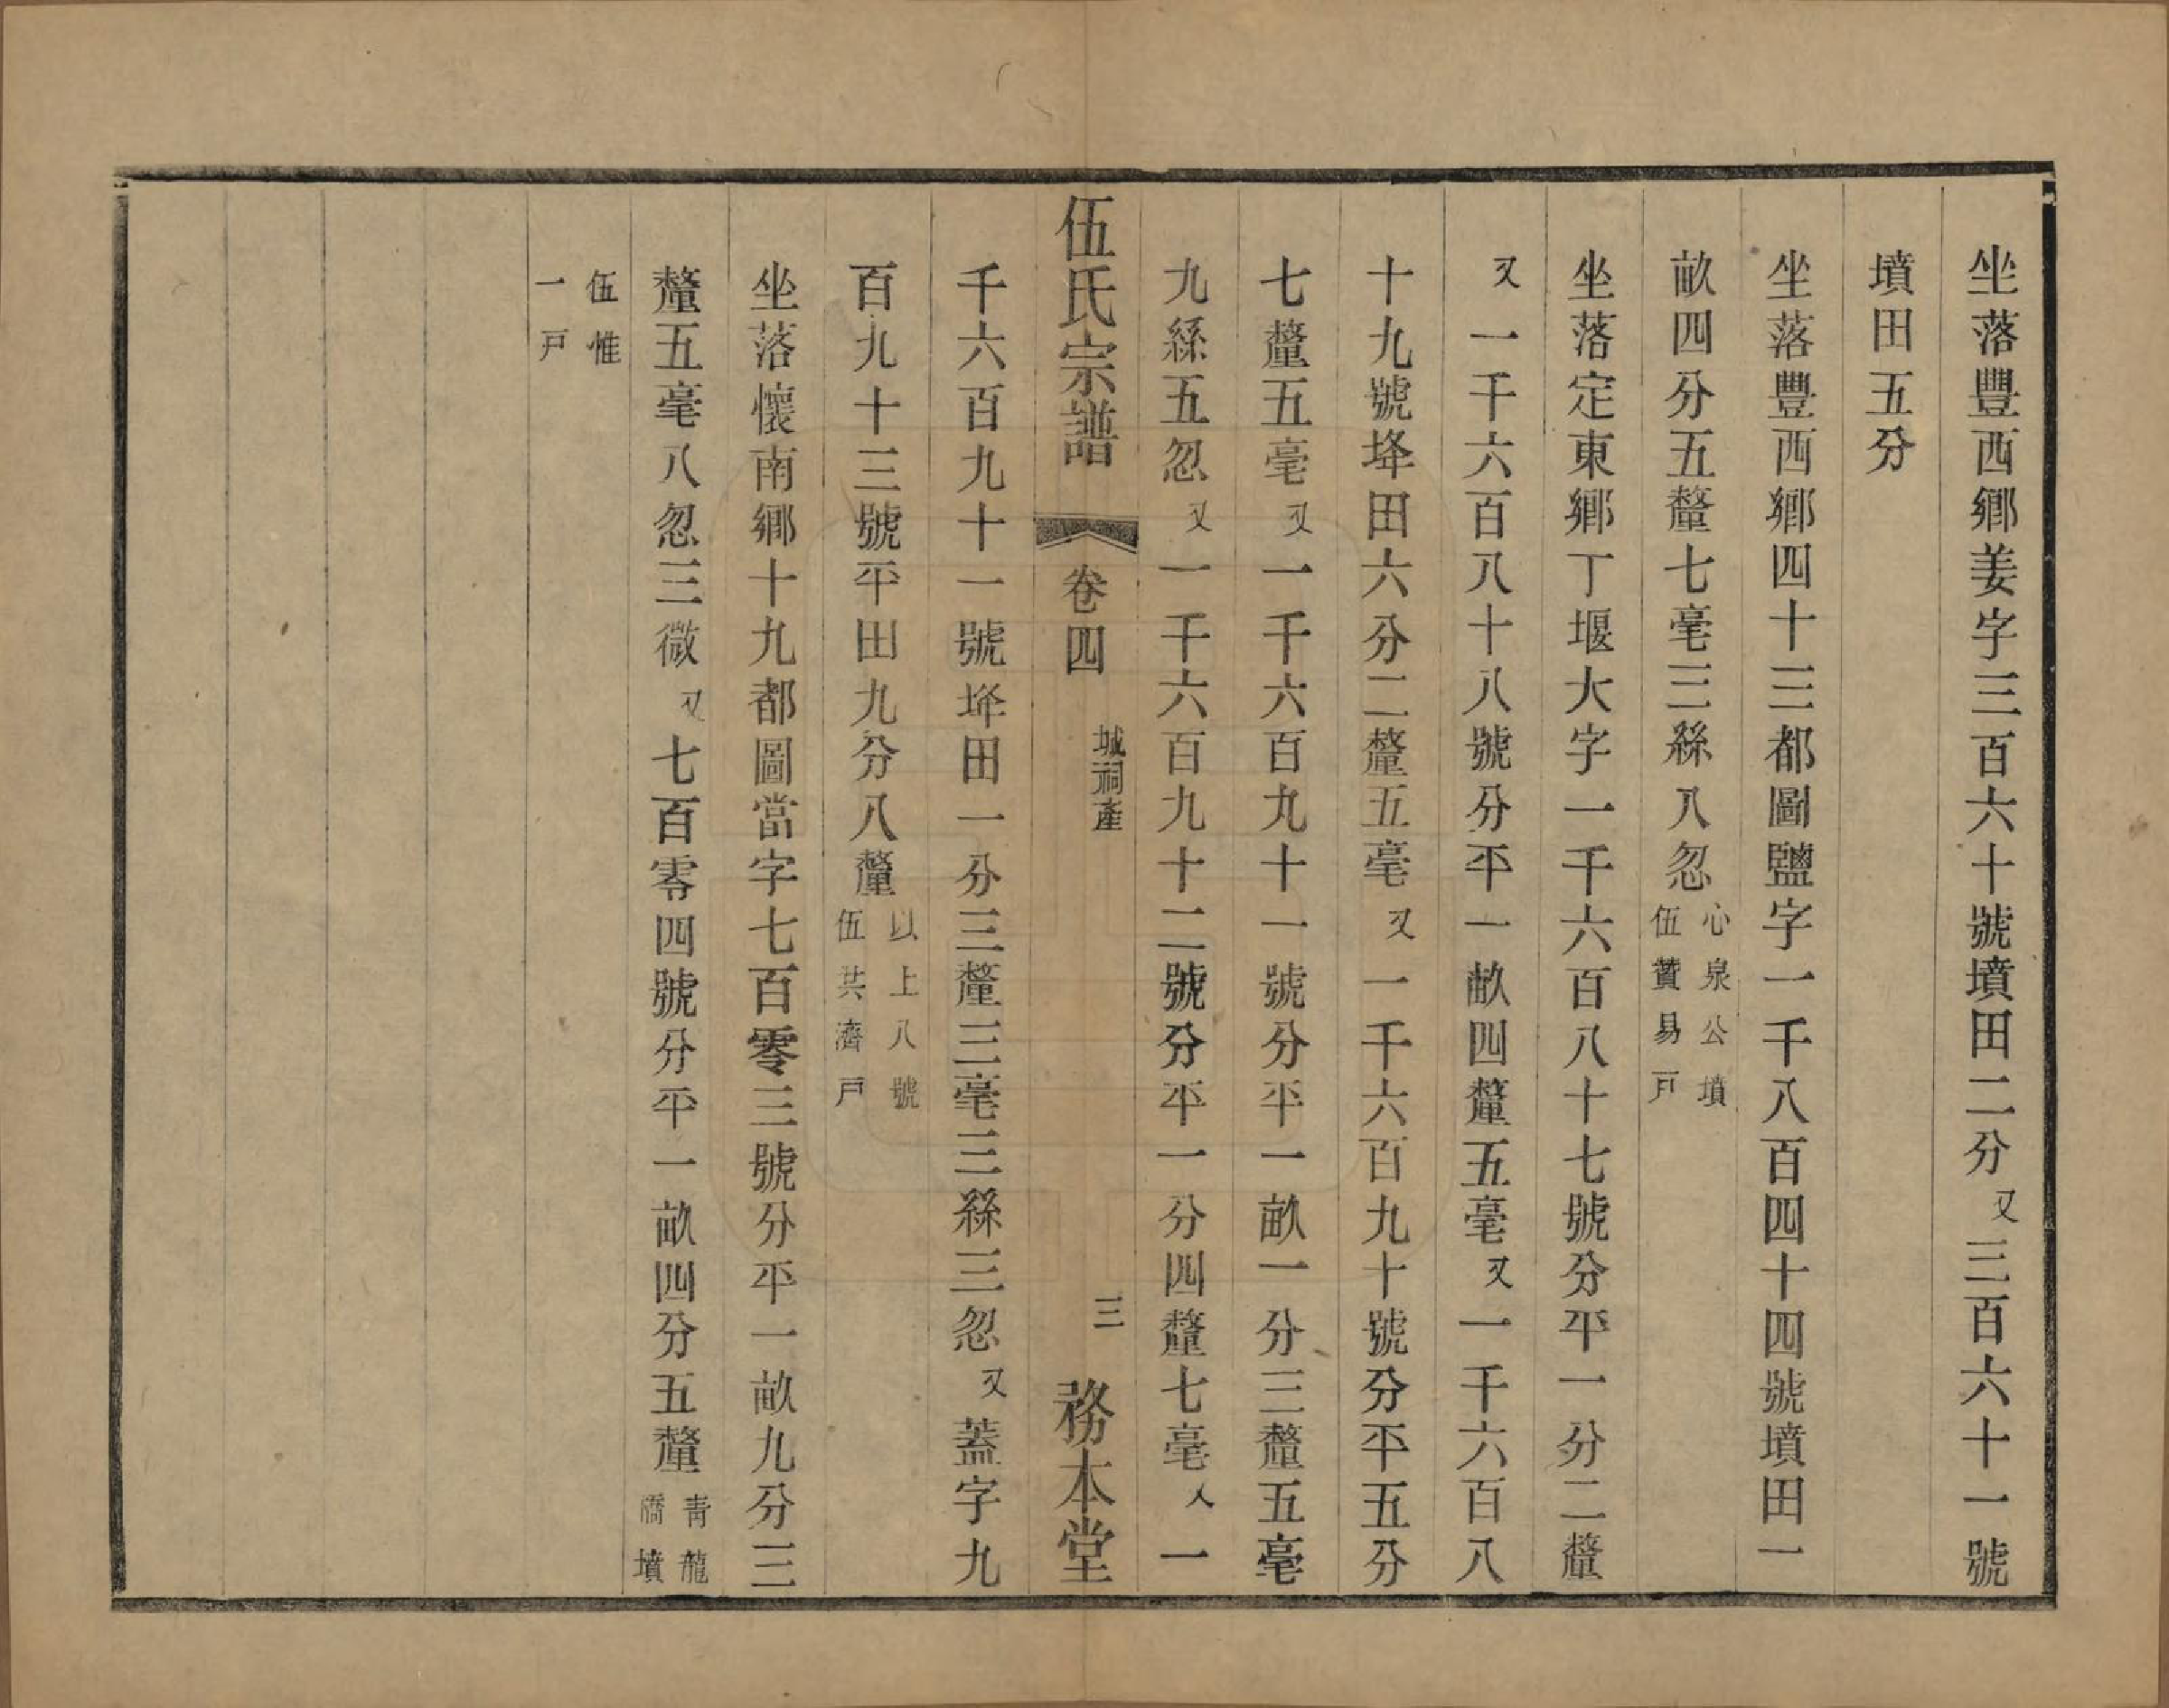 坐落豐西鄉姜字三百六十號墳田二分又三百六十一號
墳田五分
坐落豐西鄉四十三都圖鹽字一千八百四十四號墳田一
畝四分五釐七毫三絲八忽心泉公墳伍贊易戸
坐落定東鄉丁堰大字一千六百八十七號分平一分二釐
又一千六百八十八號分平一畝四釐五毫又一千六百八
十九號垰田六分二釐五毫又一千六百九十號分平五分
七釐五毫又一千六百九十一號分平一畝一分三釐五毫
九絲五忽又一千六百九十二號分平一分四釐七毫人一
伍氏宗譜 卷四 城祠產 三 務本堂
千六百九十一號垰田一分三釐三毫三絲三忽又蓋字九
百九十三號平田九分八釐以上八號伍共濟戸
坐落懷南鄉十九都圖當字七百零三號分平一畝九分三
釐五毫八忽三微又七百零四號分平一畝四分五釐青龍橋墳
伍惟一戸